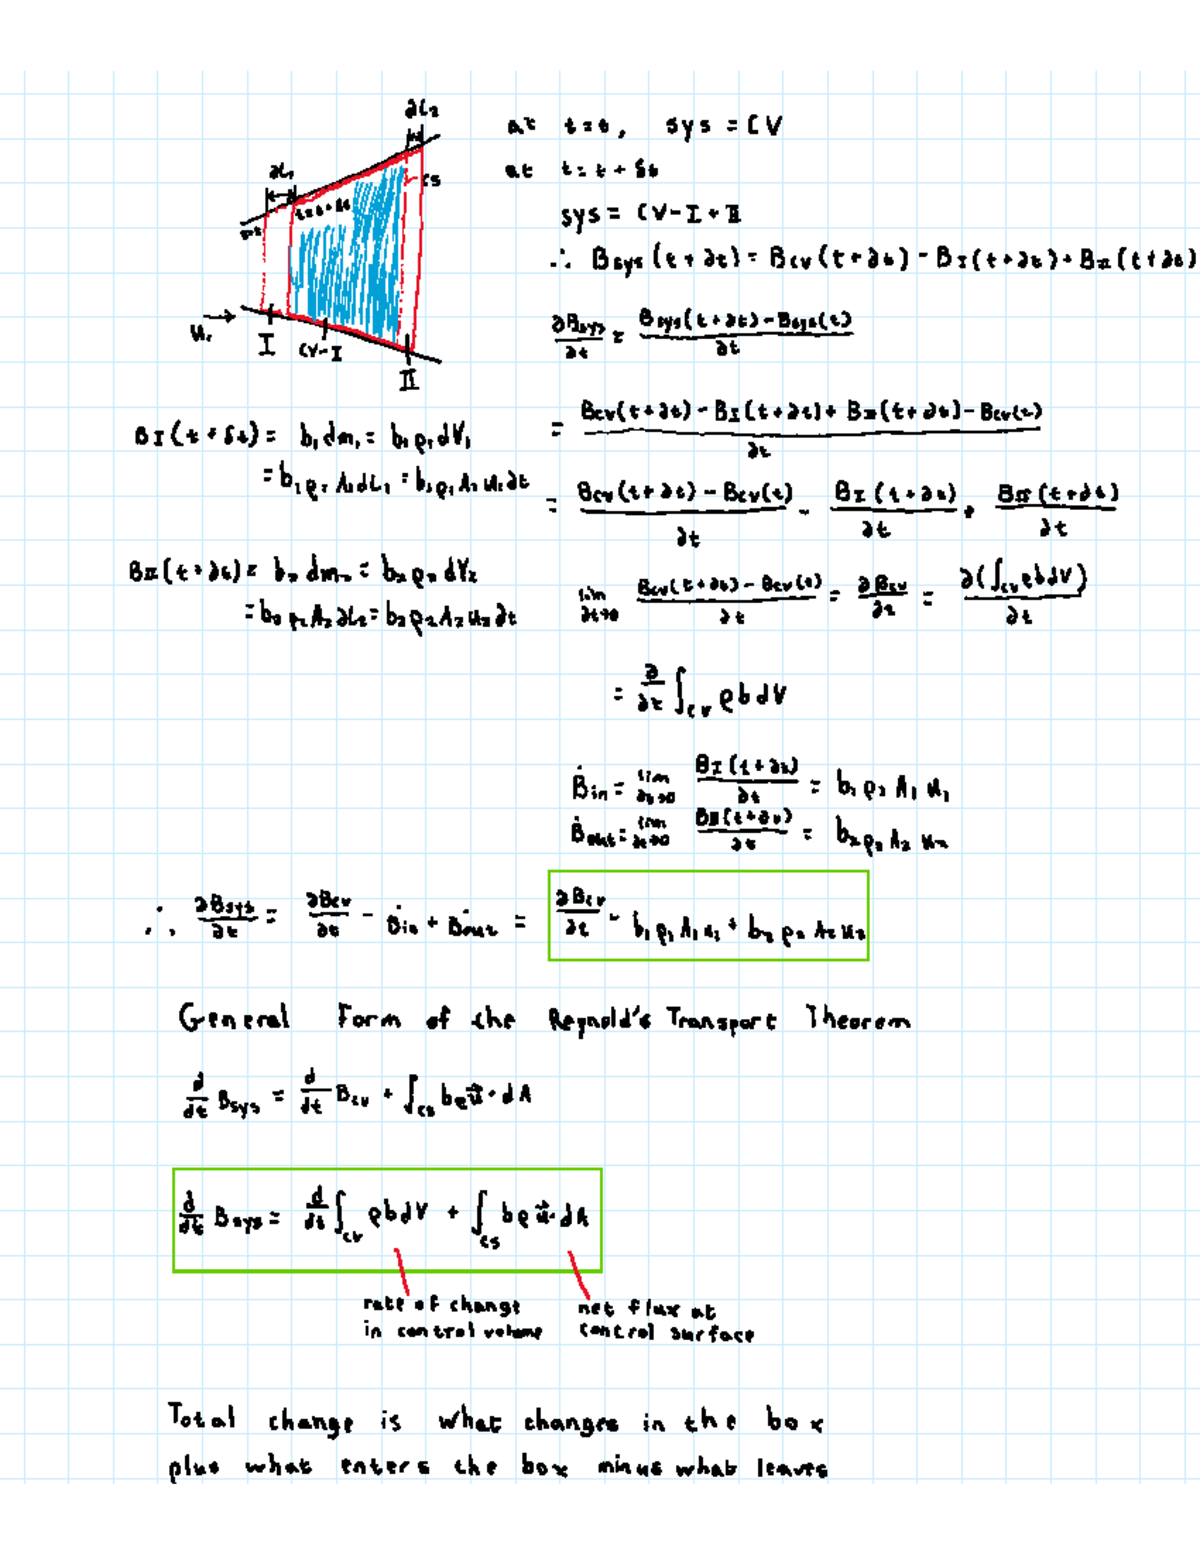 ∂L₂
at t=t, sys = CV
∂L₁
CS
at t=t+δt
t=t+δt
sys = CV-I+II
∴ Bsys(t+∂t) = Bcv(t+∂t) - B_I(t+∂t) + B_II(t+∂t)
u₁ →
I
CV-I
II
∂Bsys/∂t = (Bsys(t+∂t)-Bsys(t))/∂t
B_I(t+δt) = b₁dm₁ = b₁ρ₁dV₁
= (Bcv(t+∂t) - B_I(t+∂t) + B_II(t+∂t) - Bcv(t))/∂t
= b₁ρ₁A₁dL₁ = b₁ρ₁A₁u₁∂t
= (Bcv(t+∂t) - Bcv(t))/∂t - B_I(t+∂t)/∂t + B_II(t+∂t)/∂t
B_II(t+∂t) = b₂dm₂ = b₂ρ₂dV₂
= b₂ρ₂A₂∂L₂ = b₂ρ₂A₂u₂∂t
lim ∂t→0 (Bcv(t+∂t) - Bcv(t))/∂t = ∂Bcv/∂t = ∂(∫cv ρbdV)/∂t
= ∂/∂t ∫cv ρbdV
Ḃin = lim ∂t→0 B_I(t+∂t)/∂t = b₁ρ₁A₁u₁
Ḃout = lim ∂t→0 B_II(t+∂t)/∂t = b₂ρ₂A₂u₂
∴ ∂Bsys/∂t = ∂Bcv/∂t - Ḃin + Ḃout = ∂Bcv/∂t - b₁ρ₁A₁u₁ + b₂ρ₂A₂u₂
General Form of the Reynold's Transport Theorem
d/dt Bsys = d/dt Bcv + ∫cs bρu⃗·dA
d/dt Bsys = d/dt ∫cv ρbdV + ∫cs bρu⃗·dA
rate of change net flux at
in control volume control surface
Total change is what changes in the box
plus what enters the box minus what leaves